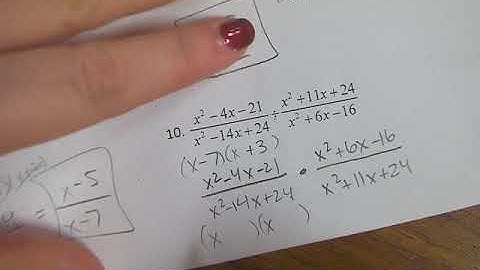 10. x² – 4x – 21 / x² – 14x + 24 ÷ x² + 11x + 24 / x² + 6x – 16
(x-7)(x+3)
x²-4x-21 / x²-14x+24 • x²+6x-16 / x²+11x+24
(x )(x )
= x-5 / x-7